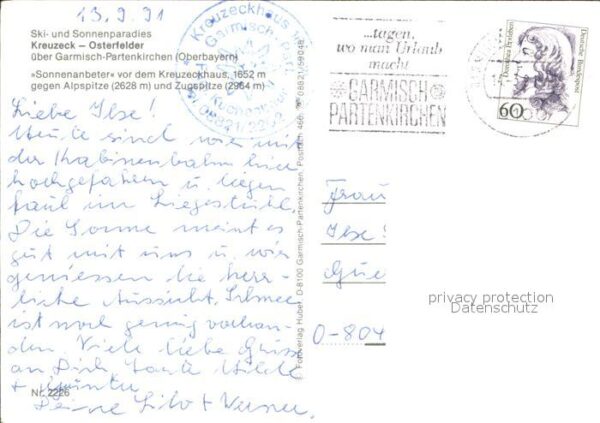 13.9.91
Ski- und Sonnenparadies
Kreuzeck – Osterfelder
über Garmisch-Partenkirchen (Oberbayern)
»Sonnenanbeter« vor dem Kreuzeckhaus, 1652 m
gegen Alpspitze (2628 m) und Zugspitze (2964 m)
Liebe Ilse!
Heute sind wir mit
der Kabinenbahn hier
hochgefahren u. liegen
faul im Liegestuhl.
Die Sonne meint es
gut mit uns u. wir
geniessen die herr-
liche Aussicht. Schnee
ist noch genug vorhan-
den. Viele liebe Grüsse
an Dich
+
Deine Lilo + Werner.
Nr. 2226
© Fotoverlag Huber, D-8100 Garmisch-Partenkirchen, Postfach 456
Kreuzeckhaus
Garmisch-Part.
08841/2202
...tagen,
wo man Urlaub
macht
GARMISCH
PARTENKIRCHEN
Dorothea Erxleben
Deutsche Bundespost
60
Frau
Ilse
0-804
privacy protection
Datenschutz